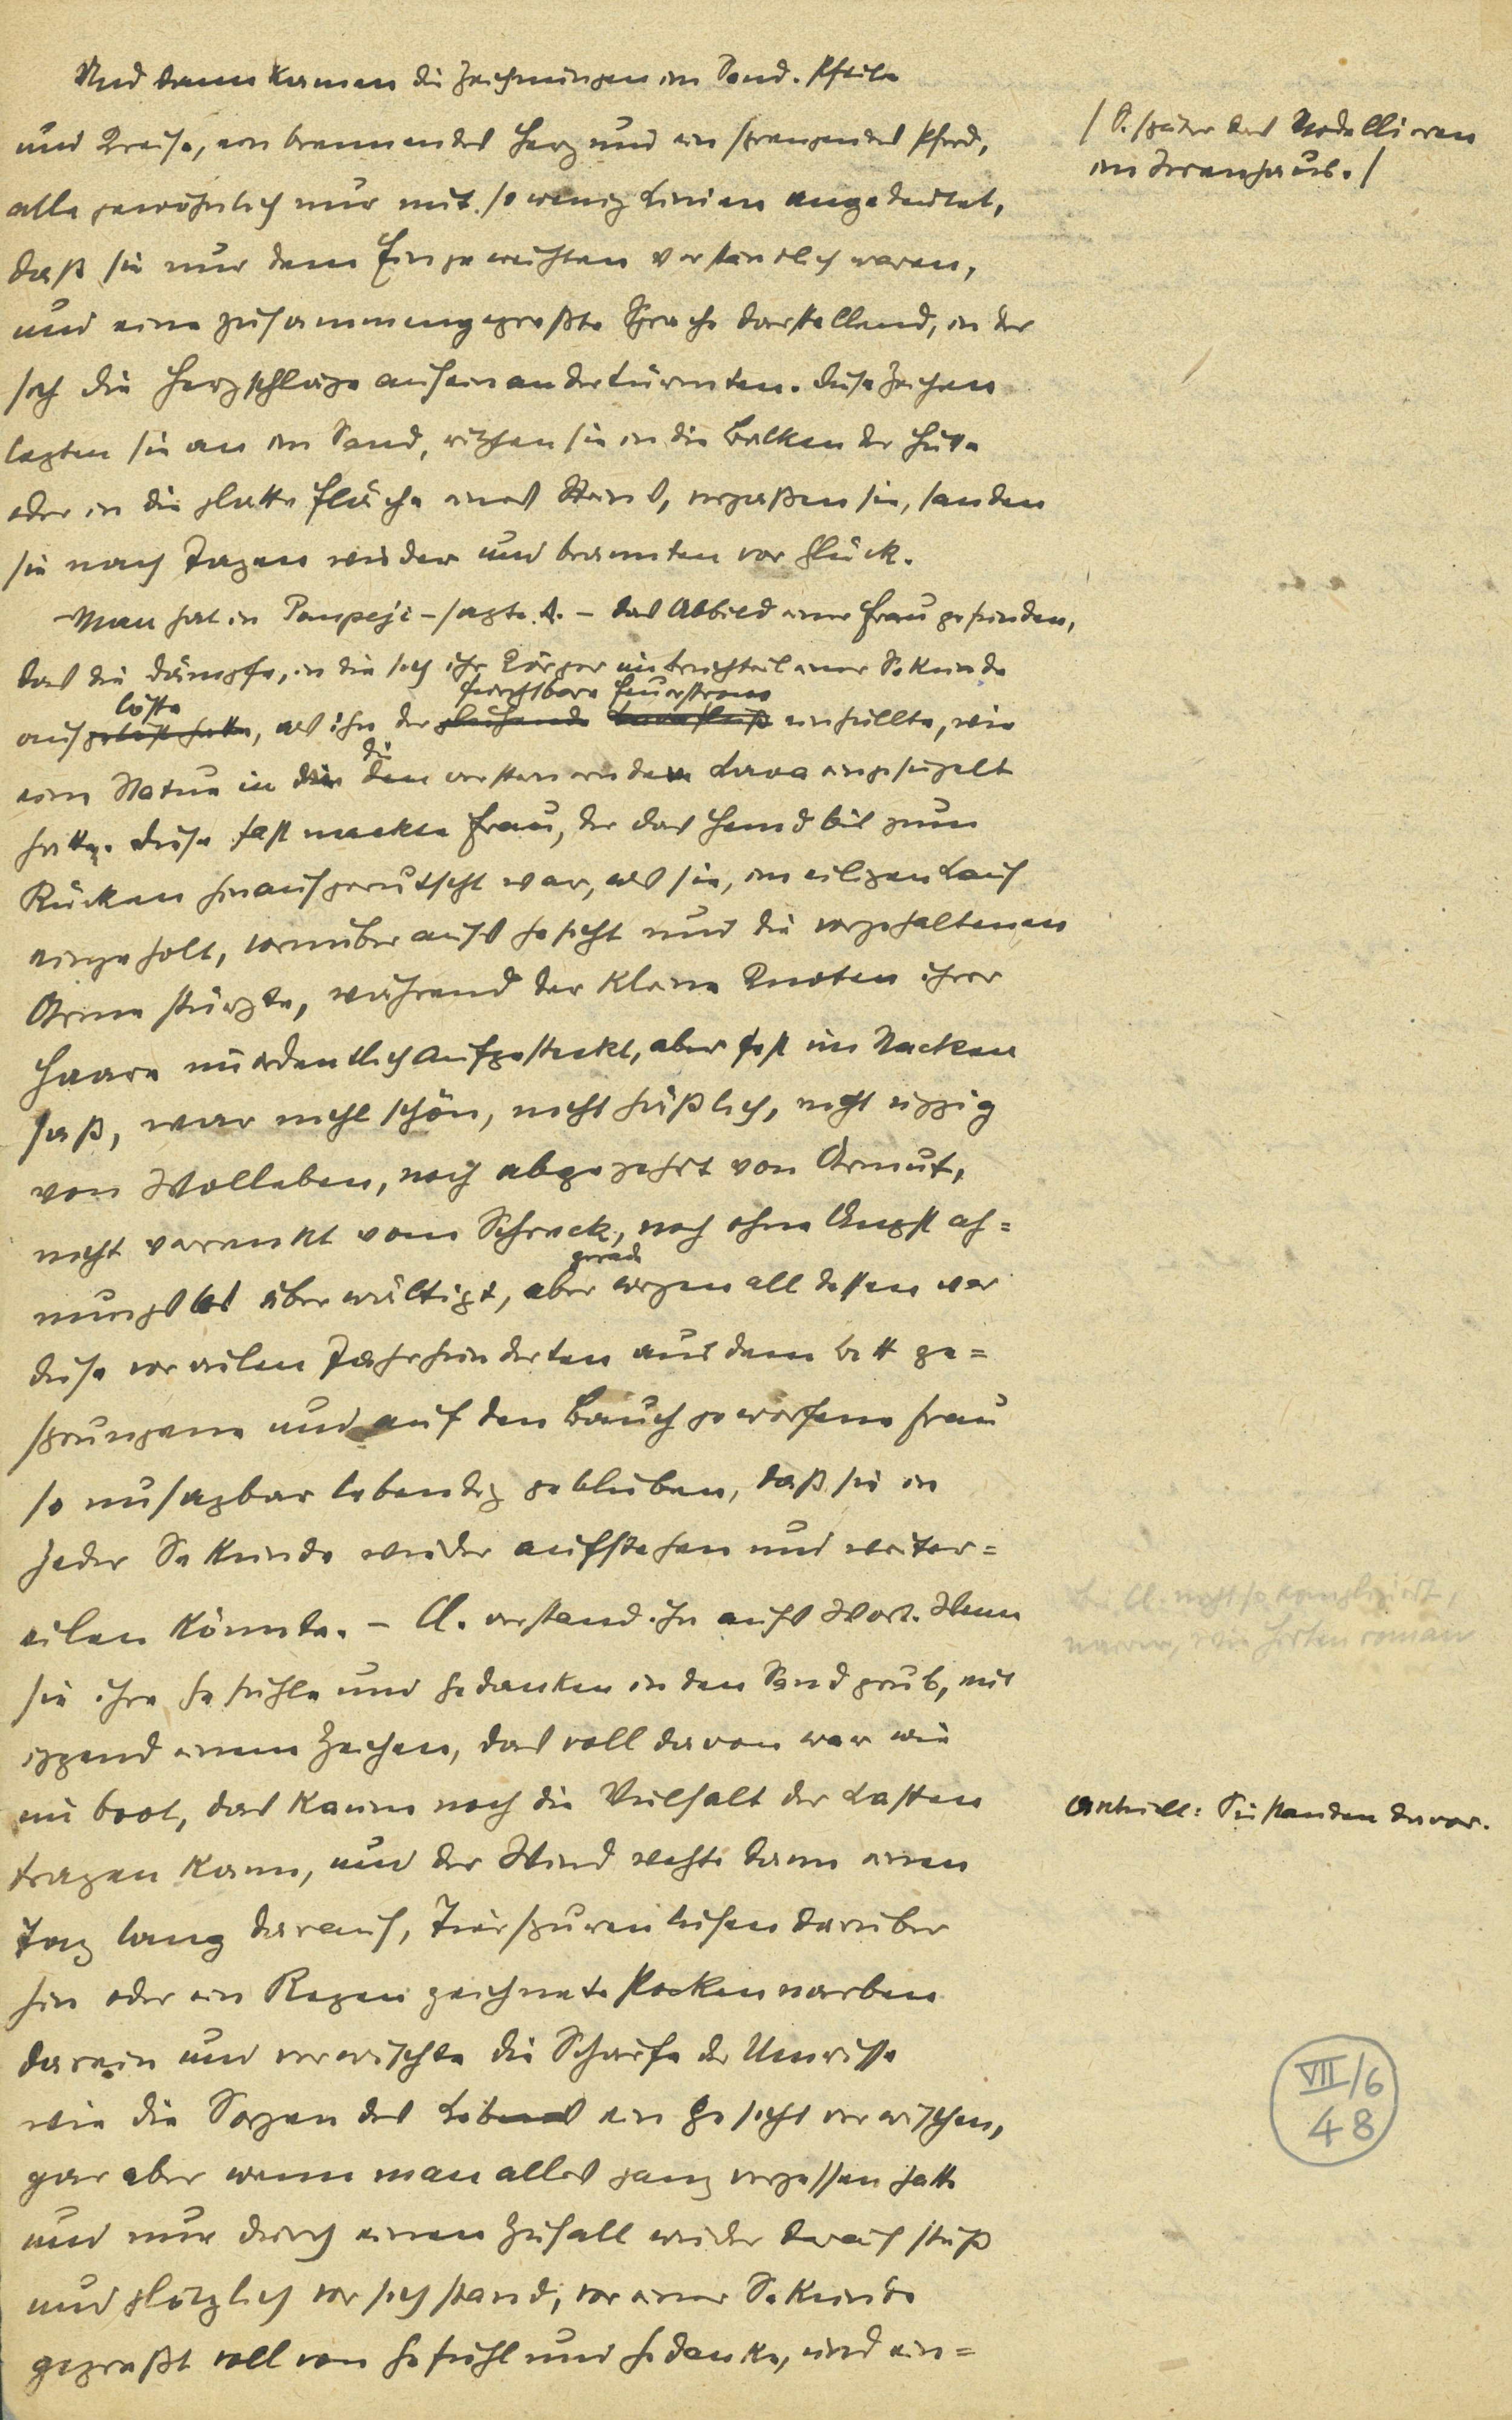 Und dann kamen die Zeichnungen im Sand. Pfeile
und Kreise, ein brennendes Herz und ein sprengendes Pferd,
alle gewöhnlich nur mit so wenig Linien angedeutet,
daß sie nur dem Eingeweihten verständlich waren,
und eine zusammengepreßte Sprache darstellend, in der
sich die Herzschläge aufeinandertürmten. Diese Zeichen
legten sie an im Sand, ritzten sie in die Balken der Hütte
oder in die glatte Fläche eines Steins, vergaßen sie, fanden
sie nach Tagen wieder und brannten vor Glück.
/ S. später das Modellieren
im Irrenhaus. /
– Man hat in Pompeji – sagte A. – das Abbild einer Frau gefunden,
das die Dämpfe, in die sich ihr Körper im Bruchteil einer Sekunde
löste furchtbare Feuerstrom
aufgelöst hatte, als ihn der glühende Lavafluß einhüllte, wie
die
eine Statue in die den erstarrende Lava eingesiegelt
hatte. Diese fast nackte Frau, der das Hemd bis zum
Rücken hinaufgerutscht war, als sie, im eiligen Lauf
eingeholt, vornüber aufs Gesicht und die vorgehaltenen
Arme stürzte, während der kleine Knoten ihrer
Haare unordentlich aufgesteckt, aber fest im Nacken
saß, war nicht schön, nicht häßlich, nicht üppig
von Wolleben, noch abgezehrt von Armut,
nicht verrenkt vom Schreck, noch ohne Angst ah=
gerade
nungslos überwältigt, aber wegen all dessen war
diese vor vielen Jahrhunderten aus dem Bett ge=
sprungene und auf den Bauch geworfene Frau
so unsagbar lebendig geblieben, daß sie in
jeder Sekunde wieder aufstehen und weiter=
eilen könnte. – A. verstand ihn aufs Wort. Wenn
bei A. nicht so kompliziert,
wie Hirtenroman
sie ihre Gefühle und Gedanken in den Sand grub, mit
irgend einem Zeichen, das voll davon war wie
ein Boot, das kaum noch die Vielfalt der Lasten
Aktuell: Sie standen davor.
tragen kann, und der Wind wehte dann einen
Tag lang darauf, Tierspuren liefen darüber
hin oder ein Regen zeichnete Pockennarben
darein und verwischte die Schärfe der Umrisse
wie die Sorgen des Lebens ein Gesicht verwischen,
gar aber wenn man alles ganz vergessen hatte
und nur durch einen Zufall wieder darauf stieß
und plötzlich vor sich stand, vor einer Sekunde
gepreßt voll von Gefühl und Gedanke, und ein=
VII/6
48